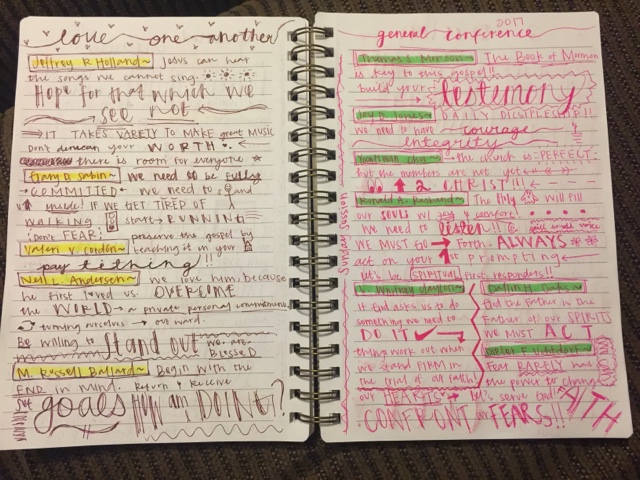 love one another
Jeffrey R Holland~ Jesus can hear
the songs we cannot sing.
Hope for that which we
see not
IT TAKES VARIETY TO MAKE great MUSIC
Don't demean your WORTH.
there is room for everyone
Gary B. Sabin~ We need to be fully
COMMITTED We need to stand
guide! IF WE GET TIRED OF
WALKING start RUNNING
DON'T FEAR! preserve the gospel by
Valeri V. Cordón~ teaching it in your
pay tithing!!!
Neil L. Andersen~ We love him, because
he first loved us. OVERCOME
the WORLD → a private personal commitment.
turning ourselves → outward.
Be willing to Stand out we are
BLESSED
M. Russell Ballard~ Begin with the
END in mind. Return & Receive
Set
goals How am I DOING?
general conference 2017
Sunday Session
Thomas S. Monson~ The Book of Mormon
is key to this gospel!
build your testimony
Joy D. Jones~ DAILY DISCIPLESHIP!!
we need to have courage
integrity
Yoon Hwan Choi~ the church is PERFECT
but the numbers are not yet
2 CHRIST!!!
Ronald A. Rasband~ The Only will fill
our SOULS w/ joy & comfort!
We need to listen!! still small voice
WE MUST GO → Forth ALWAYS
act on your 1st prompting
Let's be SPIRITUAL first responders!!
L. Whitney Clayton~
If God asks us to do
something we need to
DO IT
things work out when
we stand FIRM in
the trial of our faith!
our HEARTS
Dallin H. Oaks~
God the Father is the
Father of our SPIRITS
We MUST ACT
Dieter F. Uchtdorf~
Fear RARELY has
the power to change
Let's serve God!
CONFRONT our FEARS!! w/ FAITH